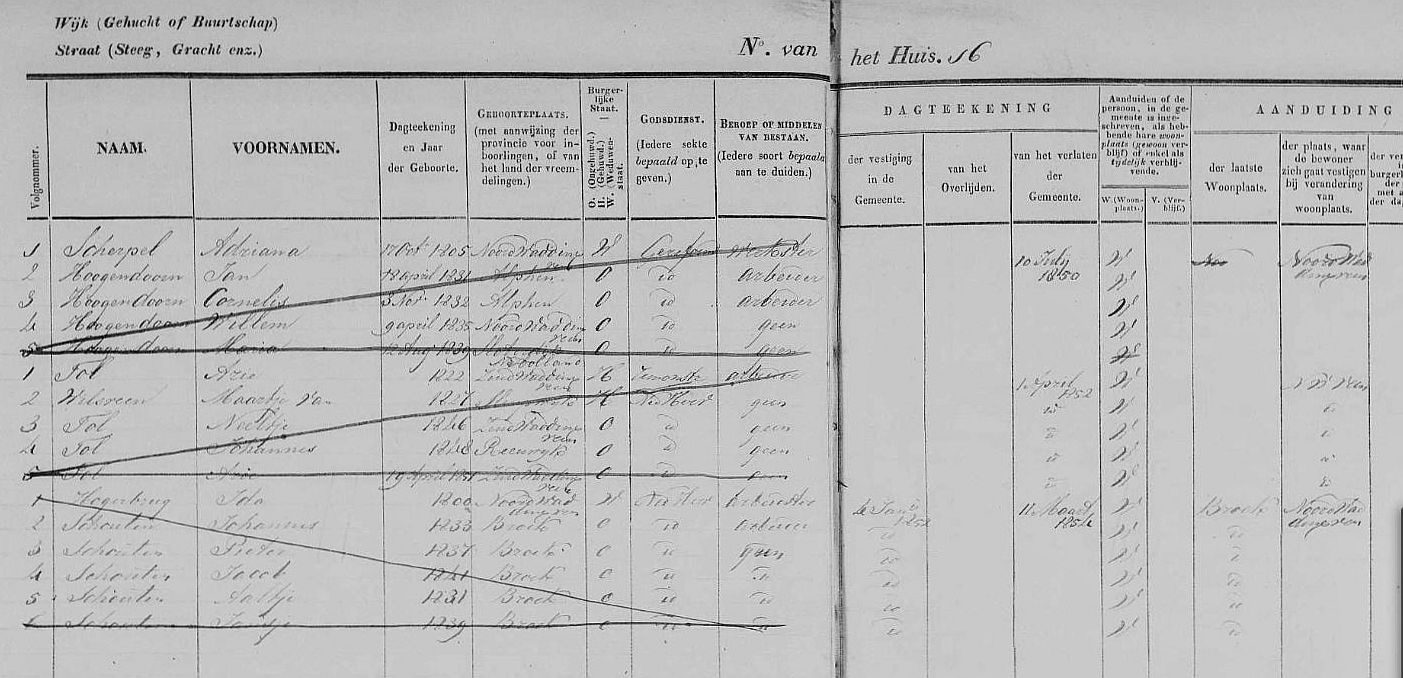 Wijk (Gehucht of Buurtschap)
Straat (Steeg, Gracht enz.)
No. van het Huis. 16
Volgnommer.
NAAM.
VOORNAMEN.
Dagteekening en Jaar der Geboorte.
GEBOORTEPLAATS. (met aanwijzing der provincie voor inboorlingen, of van het land der vreemdelingen.)
Burgerlijke Staat. — O. (Ongehuwd.) H. (Gehuwd.) W. (Weduwenstaat.)
GODSDIENST. (Iedere sekte bepaald op te geven.)
BEROEP OF MIDDELEN VAN BESTAAN. (Iedere soort bepaald aan te duiden.)
DAGTEEKENING
der vestiging in de Gemeente.
van het Overlijden.
van het verlaten der Gemeente.
Aanduiden of de persoon, in de gemeente is ingeschreven, als hebbende hare woonplaats (gewoon verblijf) of enkel als tydelijk verblijvende.
W. (Woonplaats.)
V. (Verblijf.)
AANDUIDING
der laatste Woonplaats.
der plaats, waar de bewoner zich gaat vestigen bij verandering van woonplaats.
1 Scherpel Adriana 17 Oct 1805 Noord Waddinxveen W Gereform Werkster 10 July 1850 W Noord Waddingsveen
2 Hoogendoorn Jan 18 april 1831 Alphen O id arbeider W
3 Hoogendoorn Cornelis 3 Nov. 1832 Alphen O id arbeider W
4 Hoogendoorn Willem 9 april 1835 Noord Waddinxveen O id geen W
5 Hoogendoorn Maria 12 Aug 1839 O id geen W
1 Tol Arie 1822 Zuid Waddinxveen H Remonstr arbeider 1 April 1852 W N W Veen
2 Maartje van 1827 H Ned Herv geen id W id
3 Tol Neeltje 1846 Zuid Waddinxveen O id geen id W id
4 Tol Johannes 1848 Reeuwyk O id geen id W id
5 Tol Arie 19 April 1851 Zuid Waddinxveen O id geen id W id
1 Hogerbrug Ida 1800 Noord Waddingsveen W Ned Herv arbeidster 1852 11 Maart 1854 W Broek Noord Waddingsveen
2 Schouten Johannes 1833 Broek O id arbeider id W id
3 Schouten Pieter 1837 Broek O id geen id W id
4 Schouten Jacob 1841 Broek O id id id W id
5 Schouten Aaltje 1831 Broek O id id id W id
6 Schouten 1839 Broek O id id id W id